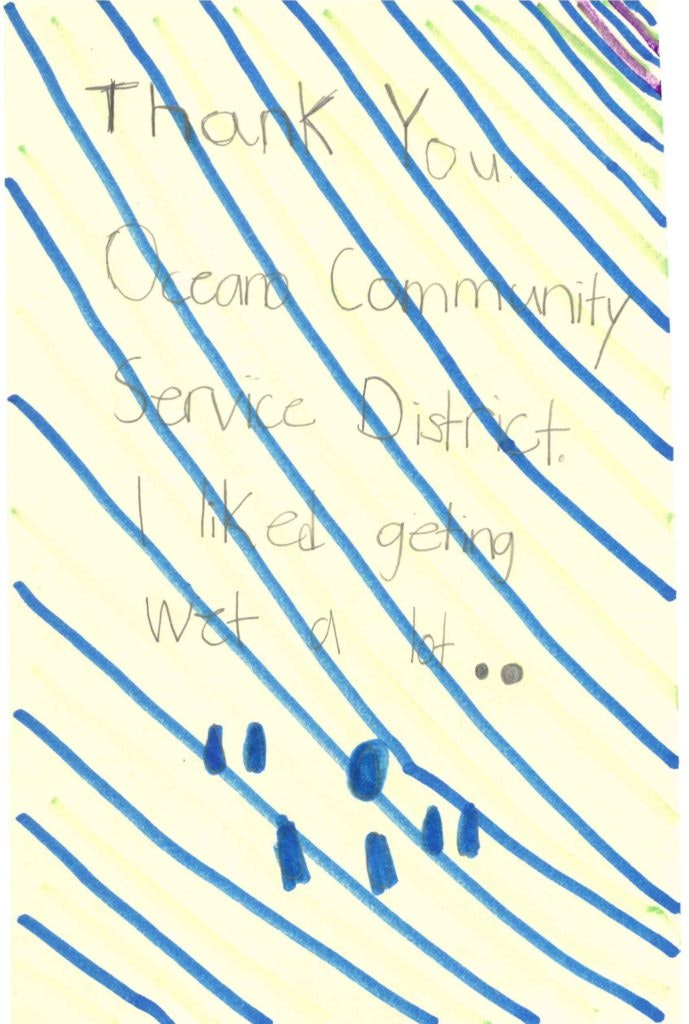 Thank You
Oceano Community
Service District.
I liked geting
wet a lot..